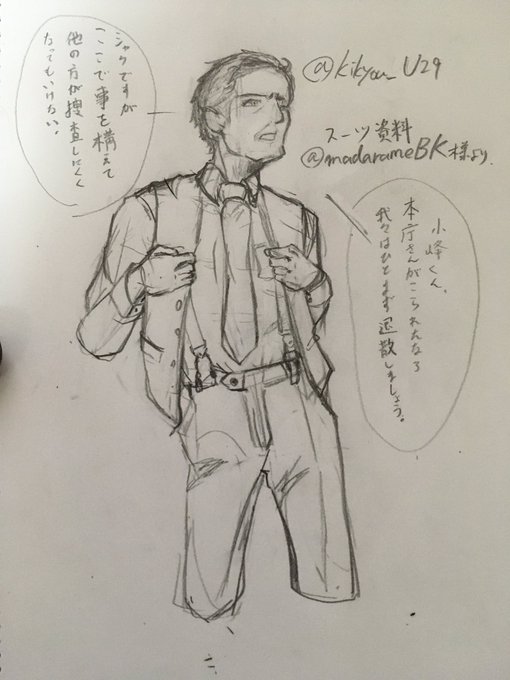 @kikyou_U29
スーツ資料
@madarameBK様より
小峰くん、
本庁さんがこられたなら
我々はひとまず退散しましょう。
シャクですが
ここで事を構えて
他の方が捜査しにくく
なってもいけない。